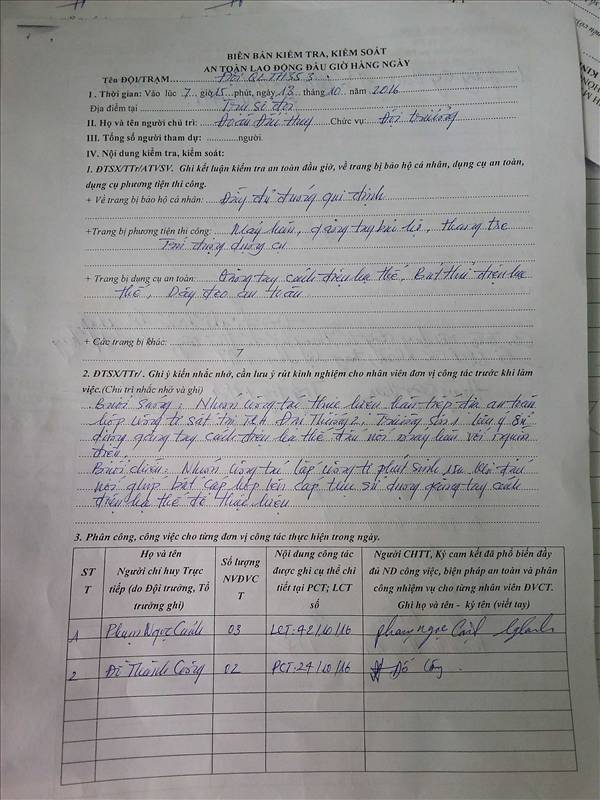 BIÊN BẢN KIỂM TRA, KIỂM SOÁT
AN TOÀN LAO ĐỘNG ĐẦU GIỜ HÀNG NGÀY
Tên ĐỘI/TRẠM: Đội QLTHSS 3
I. Thời gian: Vào lúc 7 giờ 15 phút, ngày 13 tháng 10 năm 2016
Địa điểm tại Trụ sở đội
II. Họ và tên người chủ trì: Đoàn Đức Huy Chức vụ: Đội trưởng
III. Tổng số người tham dự: người.
IV. Nội dung kiểm tra, kiểm soát:
1. ĐTSX/TTr/ATVSV. Ghi kết luận kiểm tra an toàn đầu giờ, về trang bị bảo hộ cá nhân, dụng cụ an toàn,
dụng cụ phương tiện thi công.
+ Về trang bị bảo hộ cá nhân: Đầy đủ đúng qui định
+Trang bị phương tiện thi công: Máy hàn, găng tay bảo hộ, thang tre
Túi đựng dụng cụ
+ Trang bị dụng cụ an toàn: Găng tay cách điện hạ thế, Bút thử điện hạ
thế, Dây đeo an toàn
+ Các trang bị khác:
7
2. ĐTSX/TTr/. Ghi ý kiến nhắc nhở, cần lưu ý rút kinh nghiệm cho nhân viên đơn vị công tác trước khi làm
việc.(Chủ trì nhắc nhở và ghi)
Buổi sáng: Nhóm công tác thực hiện hàn tiếp địa an toàn
hộp công tơ sắt tại TCĐ Đại Thắng 2, Trường Sơn 1 lưu ý sử
dụng găng tay cách điện hạ thế đấu nối máy hàn với nguồn
điện.
Buổi chiều: Nhóm công tác lắp công tơ phát sinh sau khi đấu
nối ghíp bắt cáp hộp lên cáp trục sử dụng găng tay cách
điện hạ thế để thực hiện
3. Phân công, công việc cho từng đơn vị công tác thực hiện trong ngày.
ST T
Họ và tên Người chỉ huy Trực tiếp (do Đội trưởng, Tổ trưởng ghi)
Số lượng NVĐVC T
Nội dung công tác được ghi cụ thể chi tiết tại PCT; LCT số
Người CHTT, Ký cam kết đã phổ biến đầy đủ ND công việc, biện pháp an toàn và phân công nhiệm vụ cho từng nhân viên ĐVCT. Ghi họ và tên - ký tên (viết tay)
1 Phạm Ngọc Cảnh 03 LCT:42/10/16 phạm ngọc Cảnh
2 Đỗ Thành Công 02 PCT:24/10/16 Đỗ Công